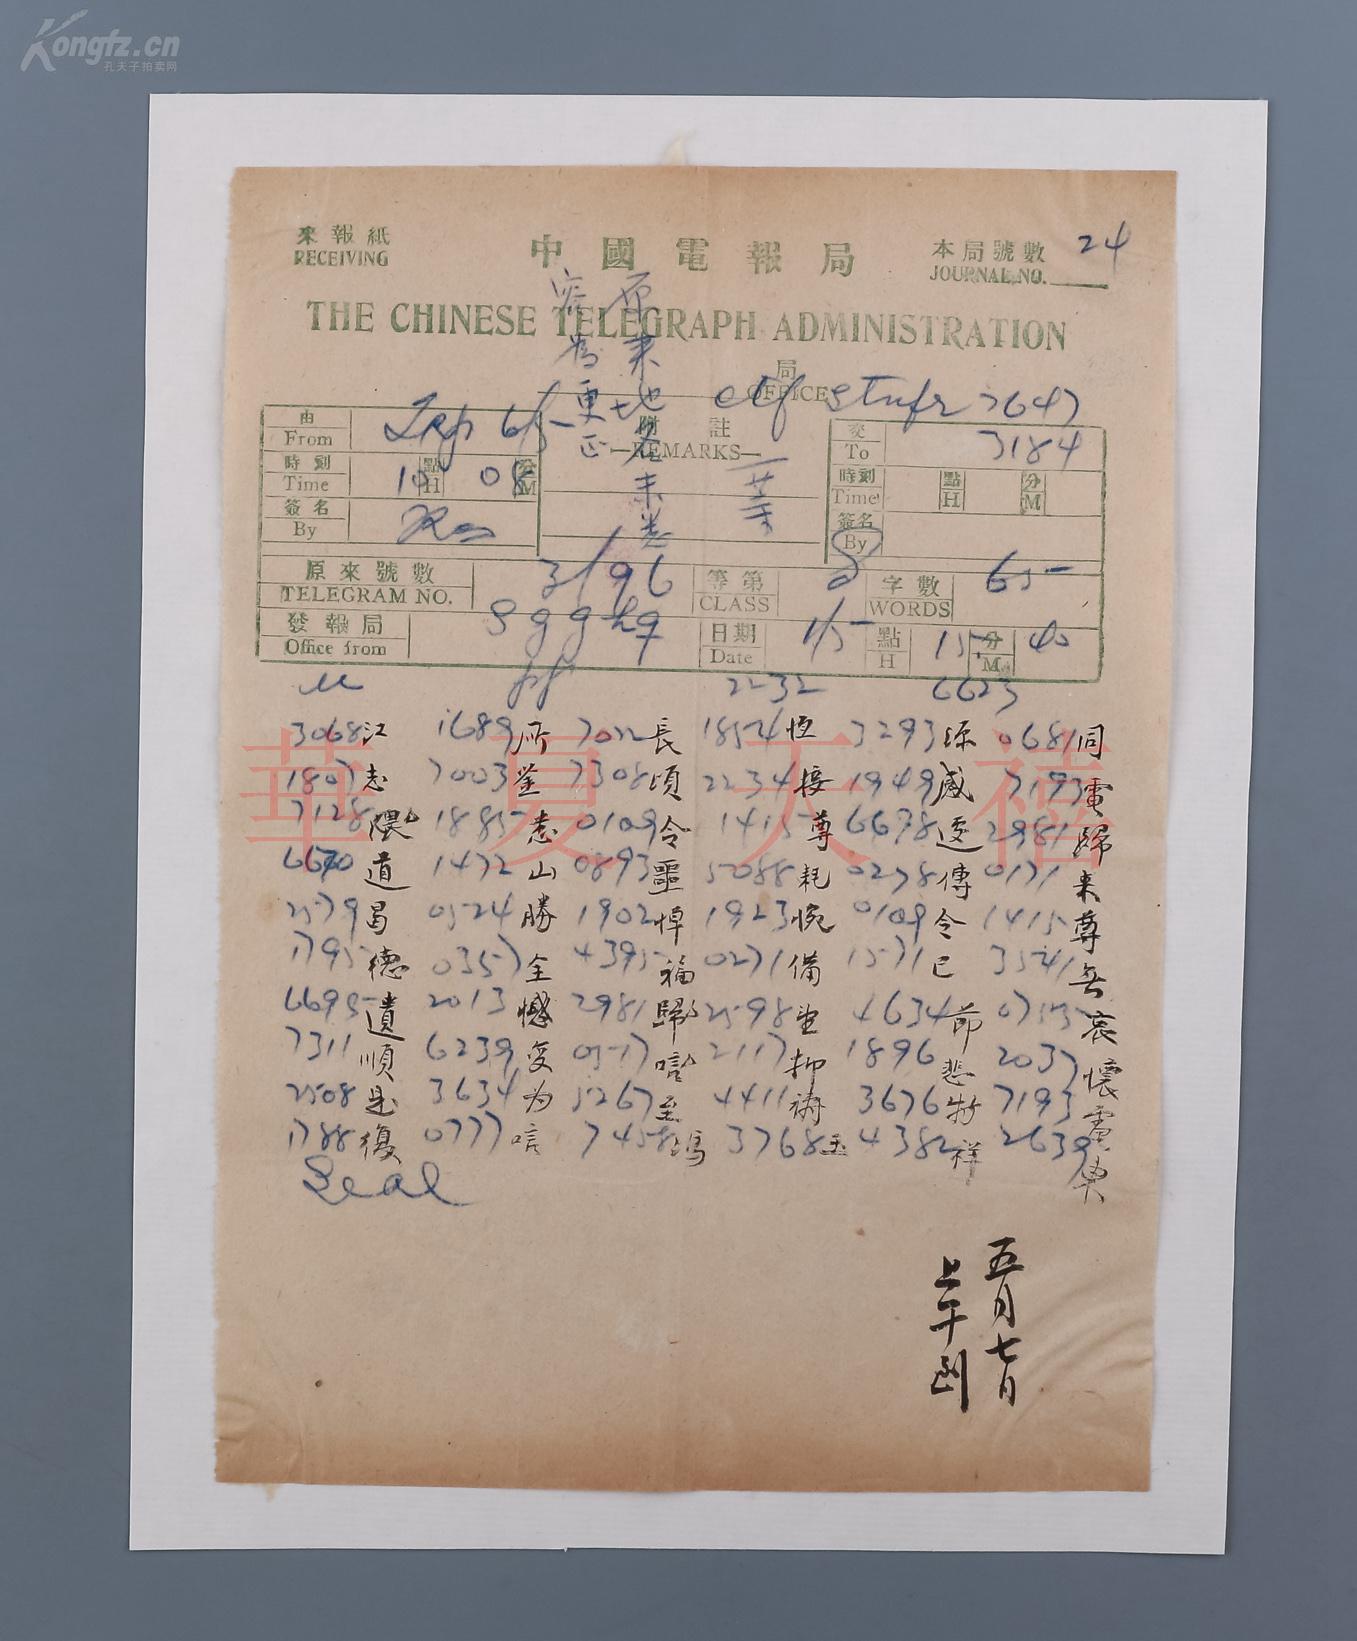 Kongfz.cn
孔夫子拍卖网
來報紙
RECEIVING
中國電報局
本局號數 24
JOURNAL NO.
THE CHINESE TELEGRAPH ADMINISTRATION
局
OFFICE
7647
3184
由
From
附註
REMARKS
交
To
時刻
Time
點
H
分
M
時刻
Time
點
H
分
M
簽名
By
簽名
By
原來號數
TELEGRAM NO.
3/96
等第
CLASS
字數
WORDS
65
發報局
Office from
日期
Date
1/5
點
H
15
分
M
40
2232 6623
3068 江 1689 所 7022 長 1854 恆 3293 0681 同
1807 志 7003 鑒 7308 頃 2234 接 1949 感 7193 電
7128 隈 1885 悉 0109 令 1415 尊 6678 遽 2981 歸
6670 道 1472 山 0893 噩 5088 耗 0278 傳 0171 來
2579 昌 0524 勝 1902 悼 1923 惋 0109 令 1415 尊
1795 德 0357 全 4395 福 0271 備 1571 已 3541
6695 遺 2013 憾 2981 歸 2598 4634 節 0755 哀
7311 順 6239 變 0517 2117 抑 1896 悲 2037 懷
2508 是 3634 为 5267 至 4411 禱 3676 特 7193 電
1788 復 0777 唁 7458 馮 3768 玉 4382 祥 2639
Seal
五月七日
上午到
華夏天禧